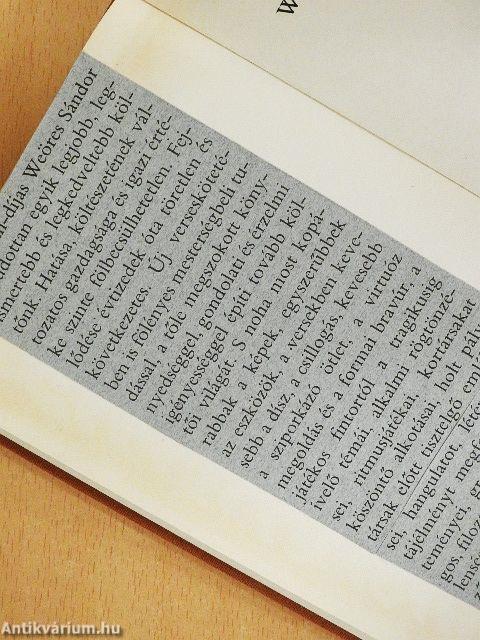 W
-díjas Weöres Sándor
adottan egyik legjobb, leg-
ismertebb és legkedveltebb köl-
tőnk. Hatása, költészetének vál-
tozatos gazdagsága és igazi érté-
ke szinte fölbecsülhetetlen. Fej-
lődése évtizedek óta töretlen és
következetes. Új versesköteté-
ben is fölényes mesterségbeli tu-
dással, a tőle megszokott köny-
nyedséggel gondolati és érzelmi
igényességgel építi tovább köl-
tői világát. S noha most kopá-
rabbak a képek, egyszerűbbek
az eszközök, a versekben keve-
sebb a dísz, a csillogás, kevesebb
a sziporkázó ötlet, a virtuóz
megoldás és a formai bravúr, a
játékos fintortól a tragikusig
ívelő témái, alkalmi rögtönzé-
sei, ritmusjátékai, kortársakat
köszöntő alkotásai, holt pály
társak előtt tisztelgő em
sei, hangulatot, lété
tájélményt megfo
teményei, g
gos, filoz
ensé
Antikvárium.hu